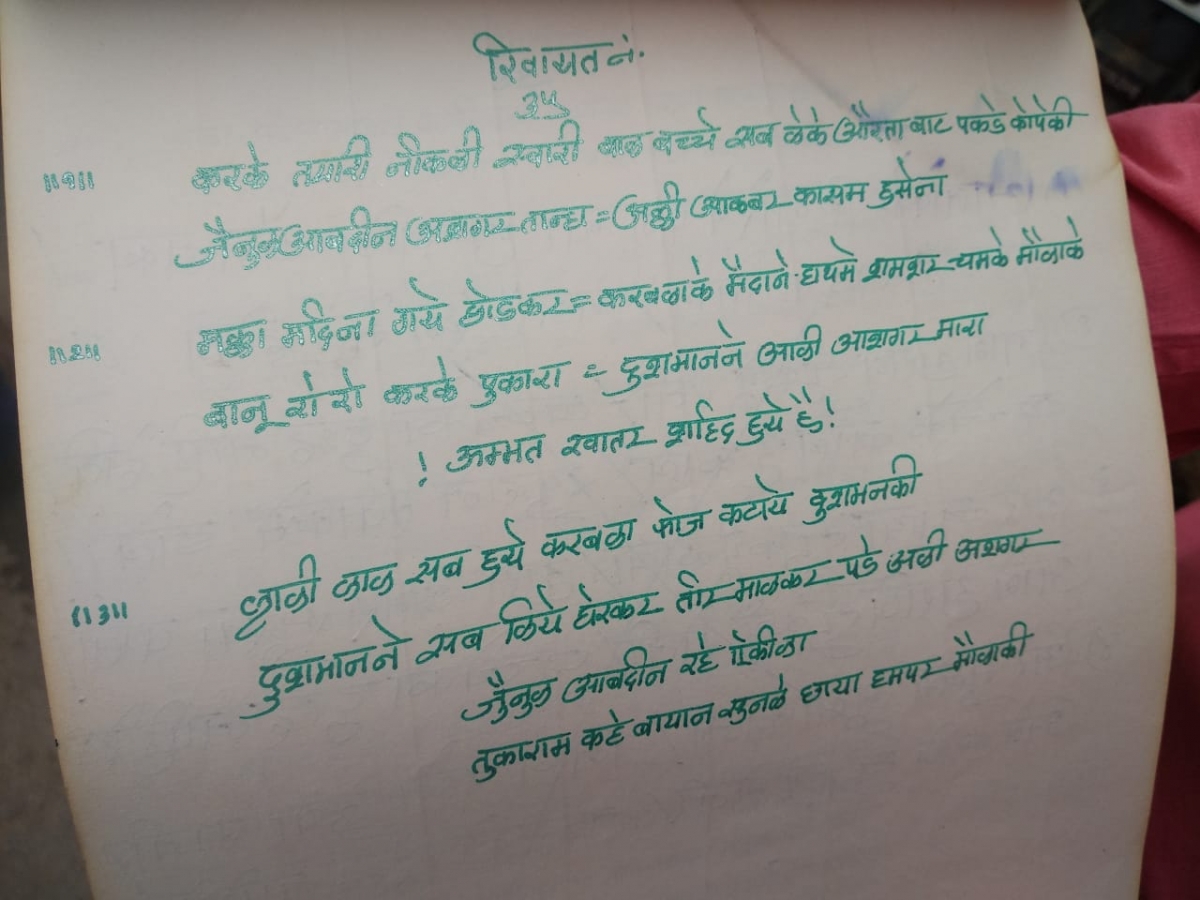 रिवायत नं.
३५
॥१॥ करके तयारी नीकली स्वारी बाल बच्चे सब लेके औरता बाट पकडे कोपेकी
जैनुलआबदीन अशगर तान्हा = अल्ली आकबर कासम हुसेना
॥२॥ मक्का मदिना गये छोडकर = करबलाके मैदाने हाथमे शमशर चमके मौलाके
बानू रो रो करके पुकारा = दुशमानने आली आशगर मारा
! अम्मत खातर शहिद हुये है !
॥३॥ लाली लाल सब हुये करबला फोज कटाये दुशमनकी
दुशमानने सब लिये घेरकर तीर मालकर पडे अली अशगर
जैनुल आबदीन रहे ऐकीला
तुकाराम कहे बायान सुनले छाया हमपर मौलाकी